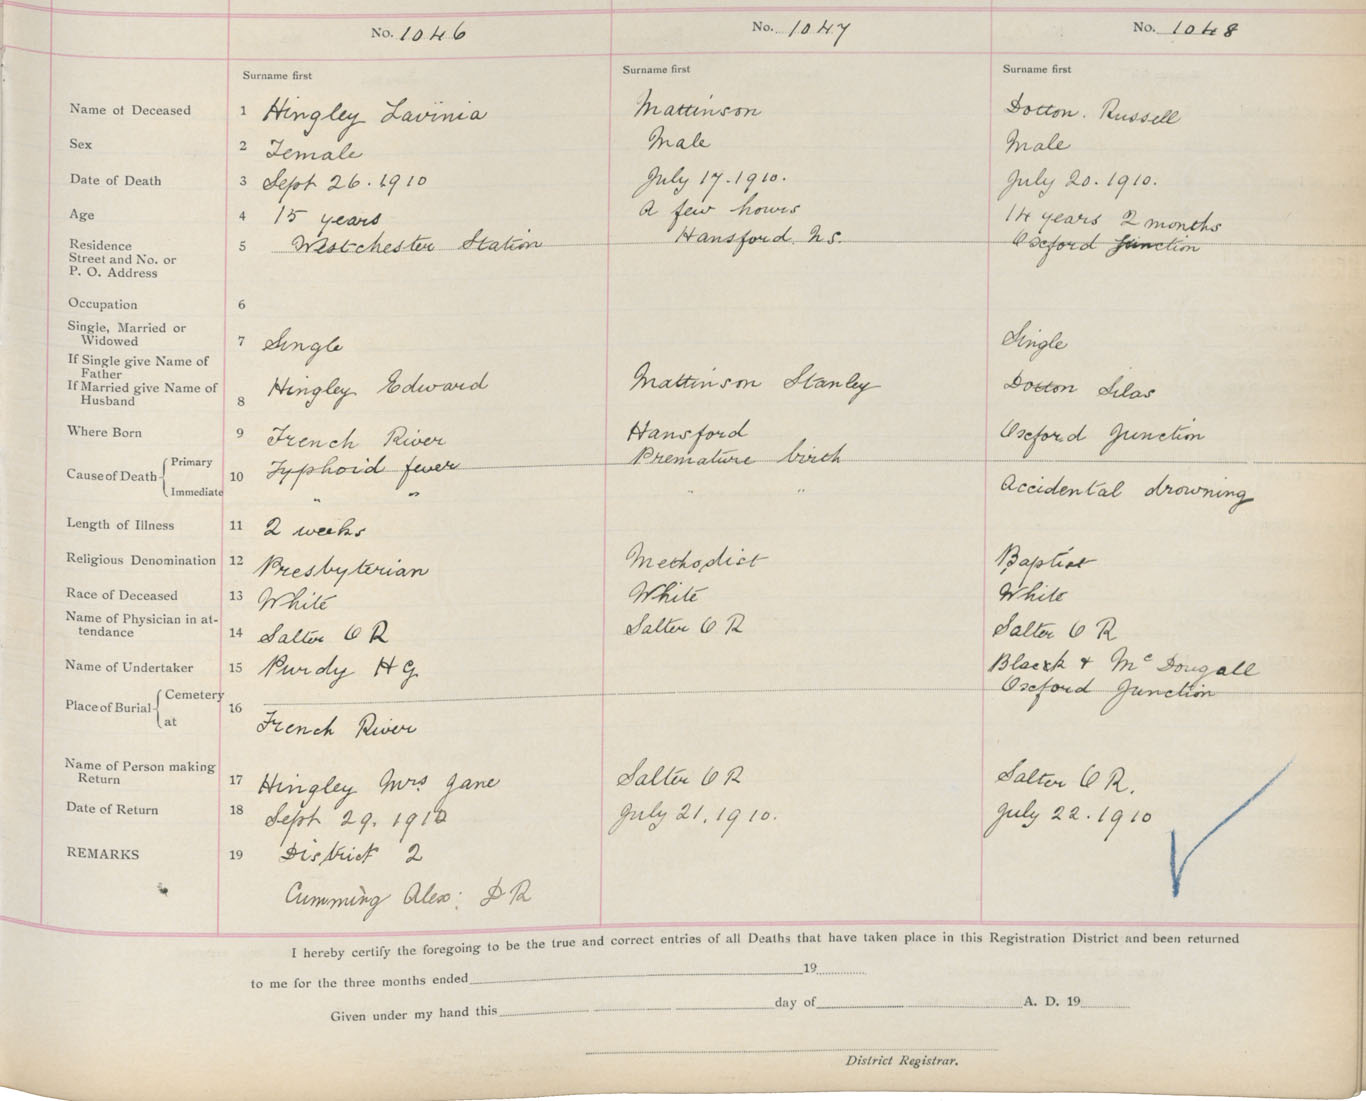 No. 1046 No. 1047 No. 1048
Surname first Surname first Surname first
Name of Deceased 1 Hingley Lavinia Mattinson Dotton. Russell
Sex 2 Female Male Male
Date of Death 3 Sept 26. 1910 July 17. 1910. July 20. 1910.
Age 4 15 years A few hours 14 years 2 months
Residence
Street and No. or
P. O. Address 5 Westchester Station Hansford. N.S. Oxford Junction
Occupation 6
Single, Married or
Widowed 7 Single Single
If Single give Name of
Father
If Married give Name of
Husband 8 Hingley Edward Mattinson Stanley Dotton Silas
Where Born 9 French River Hansford Oxford Junction
Cause of Death { Primary 10 Typhoid fever Premature birth
Immediate " " " " Accidental drowning
Length of Illness 11 2 weeks
Religious Denomination 12 Presbyterian Methodist Baptist
Race of Deceased 13 White White White
Name of Physician in at-
tendance 14 Salter O R Salter O R Salter O R
Name of Undertaker 15 Purdy H G Black & McDougall
Place of Burial { Cemetery 16 Oxford Junction
at French River
Name of Person making
Return 17 Hingley Mrs. Jane Salter O R Salter O R.
Date of Return 18 Sept 29. 1910 July 21, 1910. July 22. 1910
REMARKS 19 District 2
Cumming Alex: D R
I hereby certify the foregoing to be the true and correct entries of all Deaths that have taken place in this Registration District and been returned
to me for the three months ended 19
Given under my hand this day of A. D. 19
District Registrar.